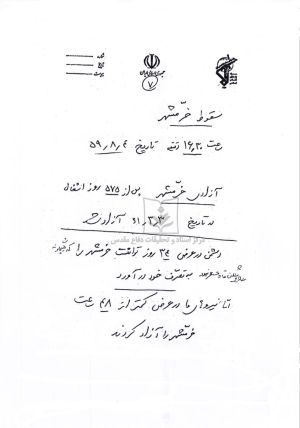 شماره
تاریخ
پیوست
جمهوری اسلامی ایران
۷
سقوط خرمشهر
ساعت ۱۶،۳۰ دقیقه تاریخ ۵۹،۸،۴
آزادی خرمشهر پس از ۵۷۵ روز اشغال
در تاریخ ۶۱،۳،۳ آزاد شد
مرکز اسناد و تحقیقات دفاع مقدس
دشمن در عرض ۳۴ روز توانست خرمشهر را
به تصرف خود درآورد
اما نیروهای ما در عرض کمتر از ۴۸ ساعت
خرمشهر را آزاد کردند